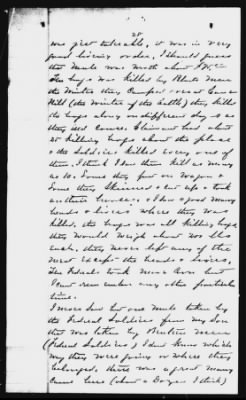 25
was quit valuable, it was in very
good living order, I should guess
the mule was worth about
The hogs was killed by Blunts men
the winter they Camped near Cane
Hill (the winter of the battle) they killed
the hogs along on different days as
they Claimant had about
25 killing hogs about the place
& the Soldiers killed every one of
them, I think I saw them kill as many
as 10. Some they put on Wagon &
Some they Skinned & cut up & took
on their horses, & I saw a good many
heads & livers where they was
killed, the hogs was all killing hogs
they would weigh about 200 lbs
each, they never left any of the
meat except the heads & livers,
The Federals took more Corn but
I can not any other particular
time.
I never saw but one mule taken by
the Federal Soldiers from my Son
that was taken by Blunts men
(Federal Soldiers,) I dont know which
way they were going or where they
belonged, there was a great many
Came here (about a Dozen I think)